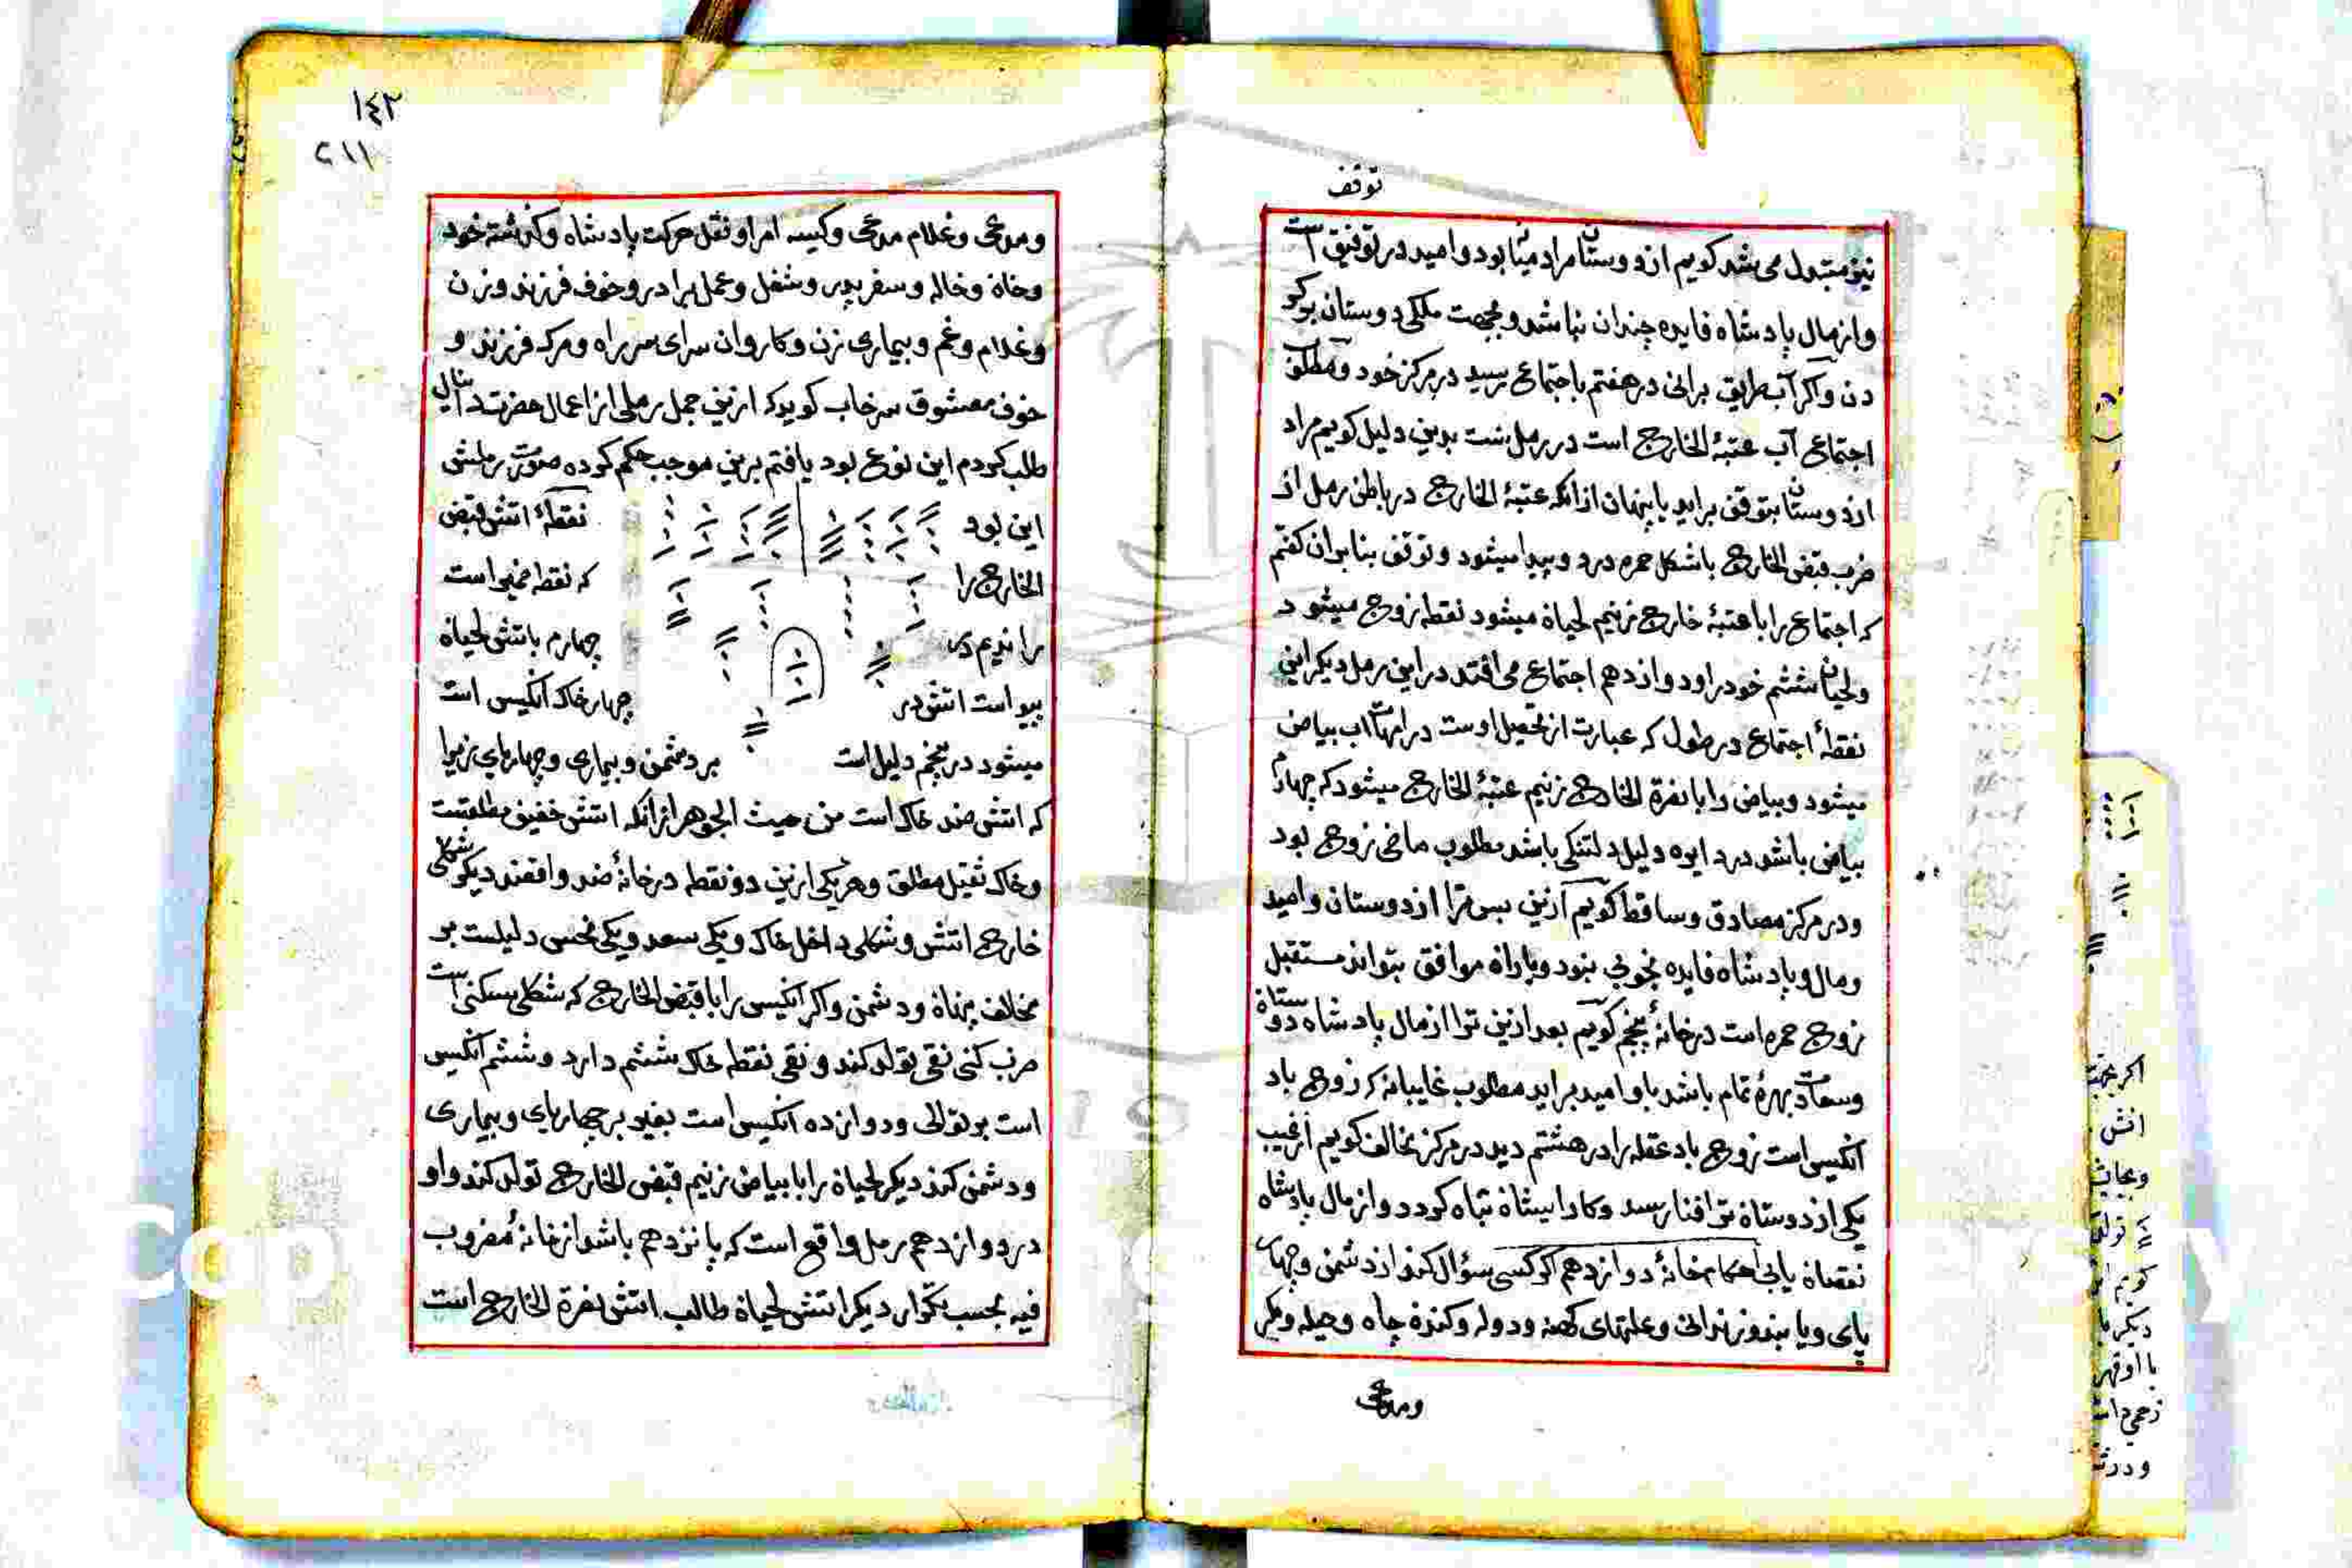 توقف
نیز مبدل می شد کویم از دوستان مراد میسا بود و امید در توفیق است
و از مال پادشاه فایده چندان نباشد و بجهت ملکی دوستان
دن و اکر آب طریق برانی در هفتم باجتماع رسید در مرکز خود و مطلوب
اجتماع آب عتبة الخارج است در رمل نیست بدین دلیل کویم مراد
از دوستان بتوقف براید یا پنهان ازانکه عتبة الخارج در باطن رمل از
ضرب قبض الخارج باشکل حمره درد و پیدا میشود و توقف بنابران کفتم
که اجتماع را با عتبة خارج زنیم لحیان میشود نقطه زوج میشود
ولحیان ششم خود را و دوازدهم اجتماع می افتد در این رمل دیکر این
نقطۀ اجتماع در طول که عبارت از تحصیل اوست در امهات آب بیاض
میشود و بیاض را با نصرة الخارج زنیم عتبة الخارج میشود که چهارم
بیاض باشد در دایره دلیل دلتنکی باشد مطلوب ماضی زوج بود
و در مرکز مصادق و ساقط کویم ازین پس ترا از دوستان و امید
و مال و پادشاه فایده بخوبی نبود و یاران موافق بتواند مستقبل
زوج حمره است در خانۀ پنجم کویم بعد ازین ترا از مال پادشاه دوستان
و سعادت بهرۀ تمام باشد با و امید براید مطلوب غایبانه که زوج باد
انکیس است زوج باد عقله را در هشتم دید در مرکز مخالف کویم از غیب
یکی از دوستان ترا فنا رسد و کار ایشان تباه کردد و از مال پادشاه
نقصان یابی احکام خانۀ دوازدهم اکر کسی سؤال کند از دشمن و چهار
پای و یا بند و زندانی و علتهای کهنه و دوله و کندن چاه و حیله و مکر
ومدعی
١٤٣
٢١١
ومدعی و غلام مدعی و کیسه امرا و نقل حرکت پادشاه و کذشته خود
و خان و خاله و سفر پدر و شغل و عمل برادر و خوف فرزند و زن
و غلام و غم و بیماری زن و کاروان سرای سر راه و مرک فرزند و
خوف معشوق سرخاب کوید که ازین جمل رملی از اعمال حضرت دانیال
طلب کردم این نوع بود یافتم برین موجب حکم کرده صورت رملش
این بود نقطۀ اتش قبض
الخارج را که نقطه ضمیر است
راندیم در چهارم باتش لحیان
پیو است اتش در چهار خاک انکیس است
میشود در پنجم دلیل است بر دشمن و بیماری و چهارپای زیرا
که اتش ضد خاک است من حیث الجوهر ازانکه اتش خفیف مطلقست
و خاک ثقیل مطلق و هر یکی ازین دو نقطه در خانۀ ضد واقعند دیکر شکلی
خارج اتش و شکلی داخل خاک و یکی سعد و یکی نحس دلیلست بر
مخالف پنهان و دشمن و اکر انکیس را با قبض الخارج که شکل مسکنی است
ضرب کنی نقی تولد کند و نقی نقطه خاک ششم دارد و ششم انکیس
است بر توالی و دوازده انکیس است بغیر بر چهارپای و بیماری
و دشمن کند دیکر لحیان را با بیاض زنیم قبض الخارج تولد کند و او
در دوازدهم رمل واقع است که پانزدهم باشد از خانۀ مضروب
فیه بحسب تکرار دیکر اتش لحیان طالب اتش نصرة الخارج است
اکر بجهت
اتش
ودرث